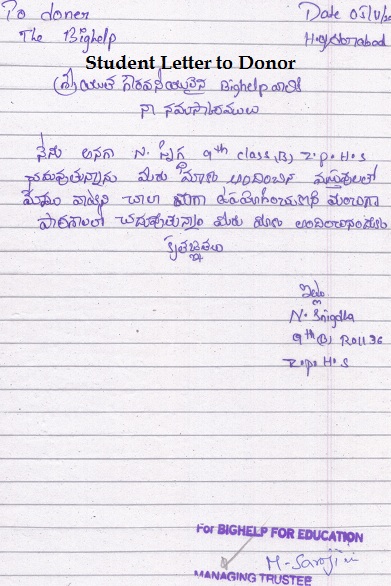 To doner
Date 05/
The Bighelp
Hyderabad
Student Letter to Donor
శ్రీయుత గౌరవనీయులైన Bighelp వారికి
నా నమస్కారములు
నేను అనగా N. స్నిగ్ధ 9th class (B) Z.p.H.s
చదువుతున్నాను మీరు మాకు అందించిన వస్తువులతో
మేము వాటిని చాలా బాగా ఉపయోగించు
చదువుతున్నాం మీరు మాకు
కృతజ్ఞతలు
ఇట్లు
N. Snigdha
9th (B) Roll 36
Z.p.H.s
For BIGHELP FOR EDUCATION
M-Sarojini
MANAGING TRUSTEE